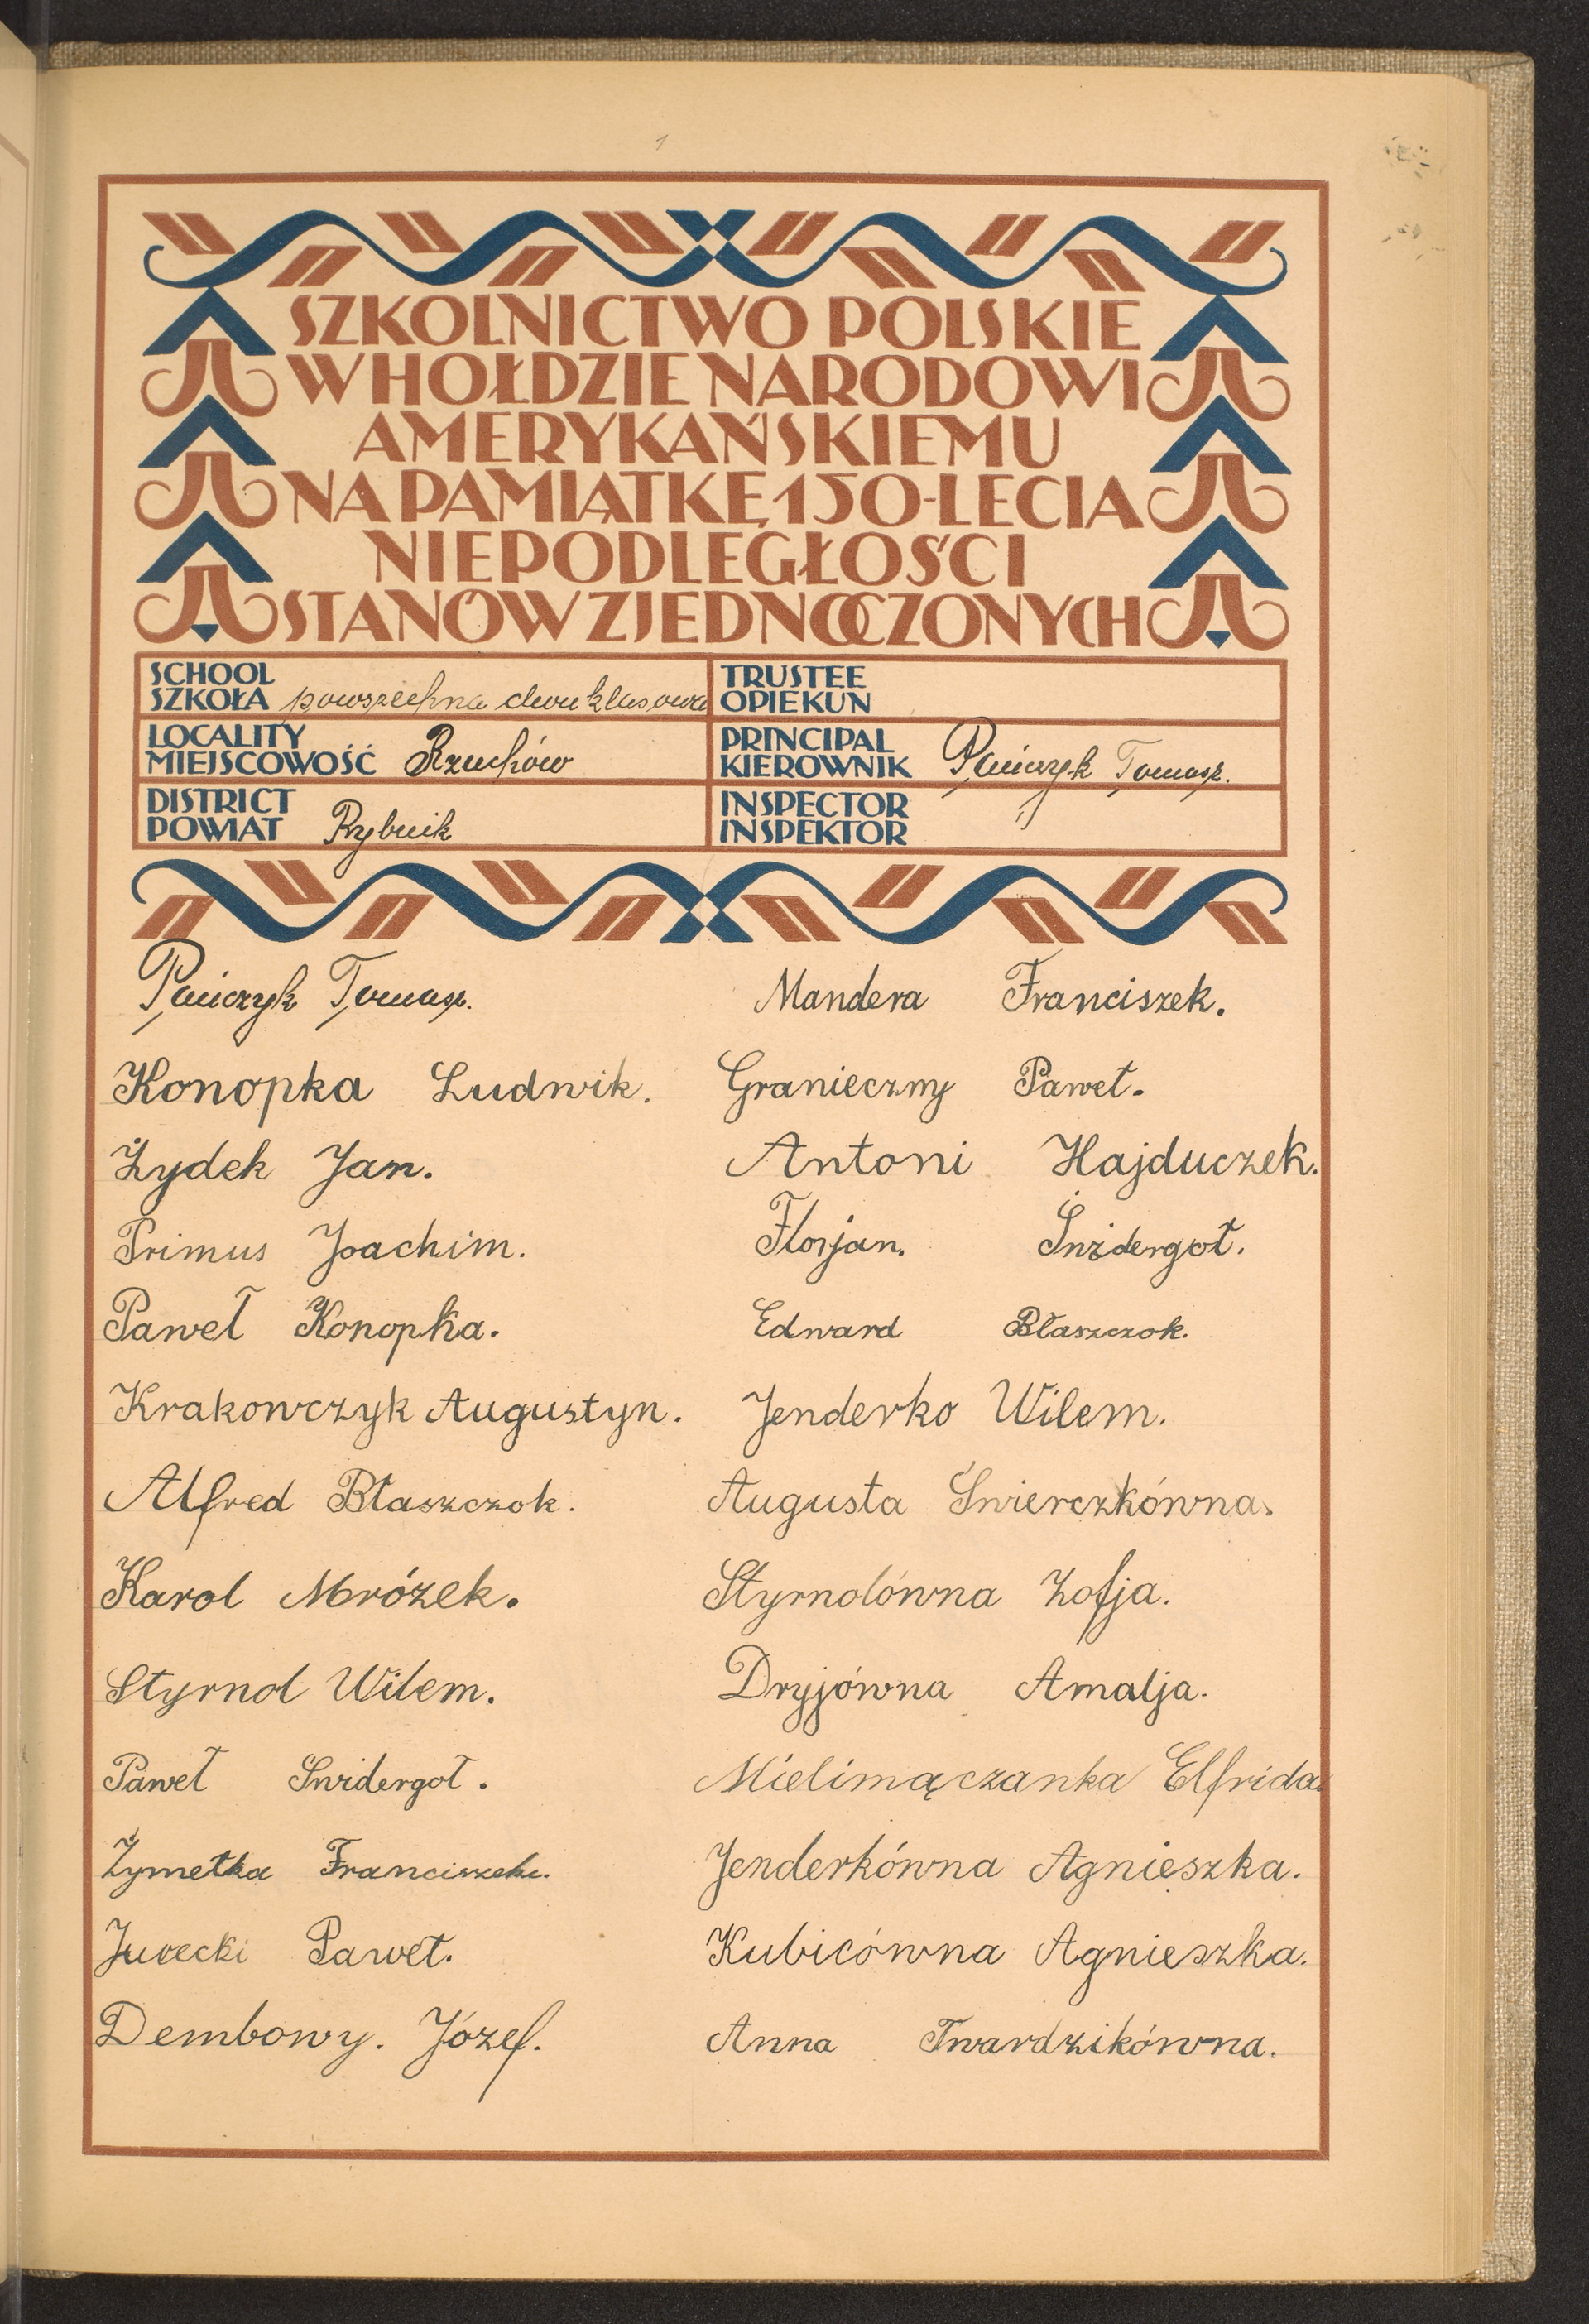 1
SZKOLNICTWO POLSKIE
W HOŁDZIE NARODOWI
AMERYKAŃSKIEMU
NA PAMIĄTKĘ 150-LECIA
NIEPODLEGŁOŚCI
STANÓW ZJEDNOCZONYCH
SCHOOL
SZKOŁA powszechna dwuklasowa
TRUSTEE
OPIEKUN
LOCALITY
MIEJSCOWOŚĆ Rzuchów
PRINCIPAL
KIEROWNIK Pańczyk Tomasz.
DISTRICT
POWIAT Rybnik
INSPECTOR
INSPEKTOR
Pańczyk Tomasz.
Konopka Ludwik.
Żydek Jan.
Primus Joachim.
Paweł Konopka.
Krakowczyk Augustyn.
Alfred Błaszczok.
Karol Mrózek.
Styrnol Wilem.
Paweł Świdergoł.
Żymełka Franciszek.
Jurecki Paweł.
Dembowy. Józef.
Mandera Franciszek.
Granieczny Paweł.
Antoni Hajduczek.
Florjan. Świdergoł.
Edward Błaszczok.
Jenderko Wilem.
Augusta Świerczkówna.
Styrnolówna Zofja.
Dryjówna Amalja.
Mielimączanka Elfrida.
Jenderkówna Agnieszka.
Kubicówna Agnieszka.
Anna Twardzikówna.